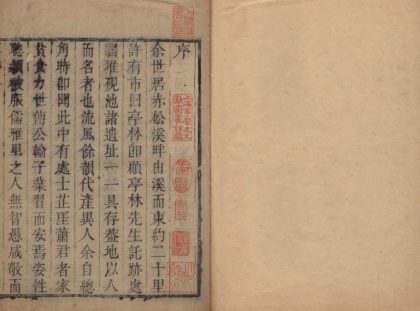 序
余世居赤松溪畔由溪而東約二十里
許有市曰亭林卽顧亭林先生託跡處
讀書堆硯池諸遺址一一具存葢地以人
而名者也流風餘韻代產異人余自總
角時卽聞此中有處士芷厓蕭君者家
貧食力世傳公輸子業習而安焉姿性
聰頴被服儒雅里之人無智愚咸敬而